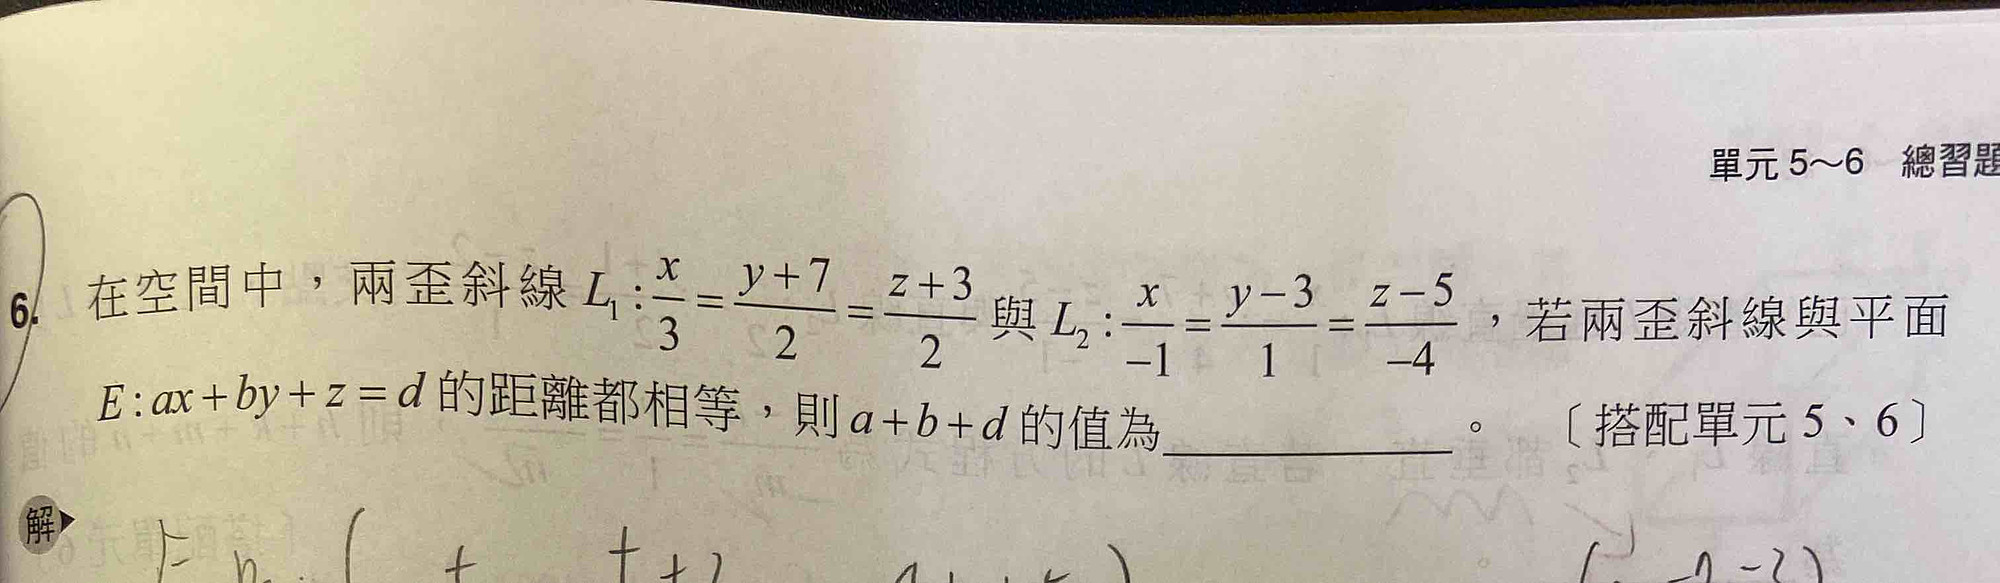 單元 5～6 總習題
6. 在空間中，兩歪斜線 L₁ : x/3 = (y+7)/2 = (z+3)/2 與 L₂ : x/-1 = (y-3)/1 = (z-5)/-4 ，若兩歪斜線與平面
E : ax + by + z = d 的距離都相等，則 a + b + d 的值為________。〔搭配單元 5、6〕
解